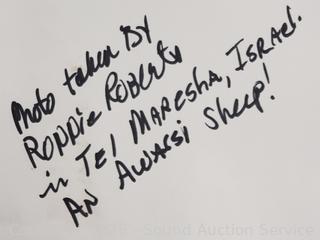 Photo taken By
RONNIE ROBERTS
in Tel MARESHA, ISRAEL.
AN AWASSI Sheep!
Sound Auction Service